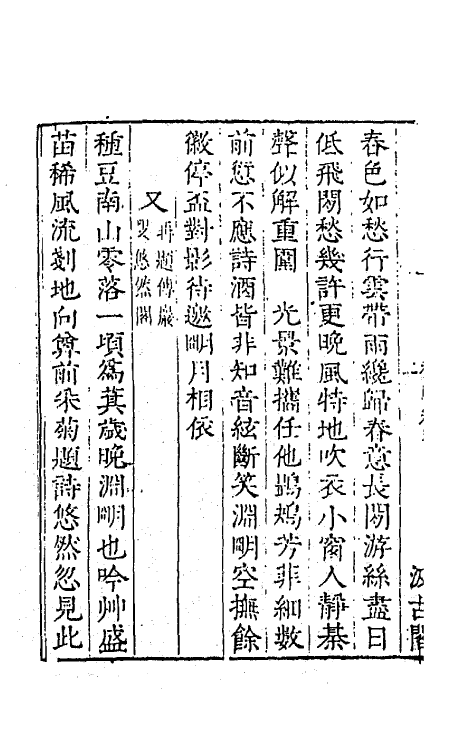 春色如愁行雲帶雨纔歸春意長閒游絲盡日
低飛閒愁幾許更晚風特地吹衣小窗人靜棊
聲似解重圍　光景難攜任他鶗鴂芳菲細數
從前不應詩酒皆非知音絃斷笑淵明空撫餘
徽停盃對影待邀明月相依
又再題傅巖叟悠然閣
種豆南山零落一頃爲萁歲晚淵明也吟艸盛
苗稀風流剗地向尊前采菊題詩悠然忽見此
汲古閣